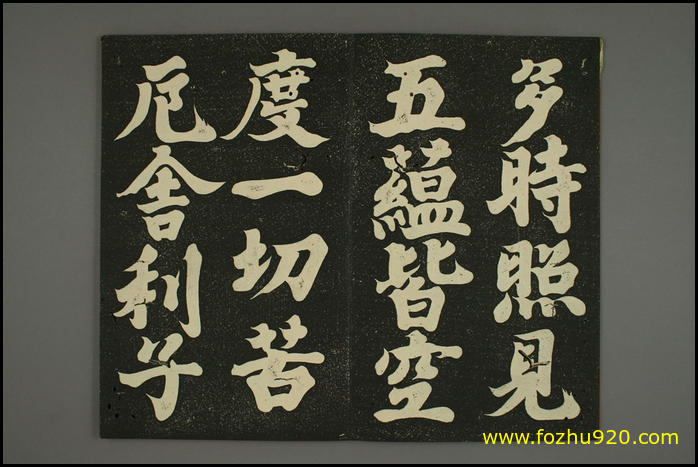 多時照見
五蘊皆空
度一切苦
厄舍利子
www.fozhu920.com